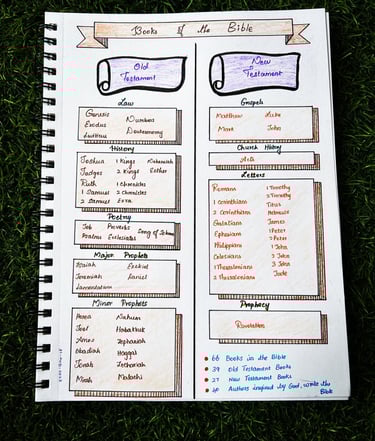 Books of the Bible
Old
Testament
Law
Genesis
Exodus
Leviticus
Numbers
Deuteronomy
History
Joshua
Judges
Ruth
1 Samuel
2 Samuel
1 Kings
2 Kings
1 Chronicles
2 Chronicles
Ezra
Nehemiah
Esther
Poetry
Job
Psalms
Proverbs
Ecclesiastes
Song of
Major Prophets
Isaiah
Jeremiah
Lamentation
Ezekiel
Daniel
Minor Prophets
Hosea
Joel
Amos
Obadiah
Jonah
Micah
Nahum
Habakkuk
Zephaniah
Haggai
Zechariah
Malachi
New
Testament
Gospels
Matthew
Mark
Luke
John
Church History
Acts
Letters
Romans
1 Corinthians
2 Corinthians
Galatians
Ephesians
Philippians
Colossians
1 Thessalonians
2 Thessalonians
1 Timothy
2 Timothy
Titus
Hebrews
James
1 Peter
2 Peter
1 John
2 John
3 John
Jude
Prophecy
Revelation
66 Books in the Bible
39 Old Testament Books
27 New Testament Books
40 Authors inspired by God, wrote the
Bible